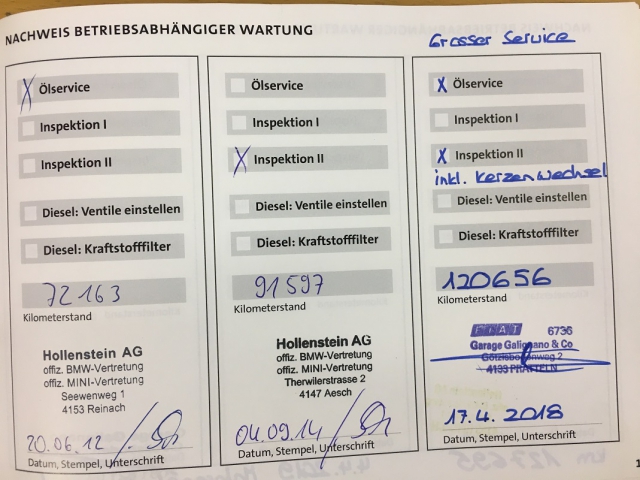 NACHWEIS BETRIEBSABHÄNGIGER WARTUNG
X Ölservice
Inspektion I
Inspektion II
Diesel: Ventile einstellen
Diesel: Kraftstofffilter
72163
Kilometerstand
Hollenstein AG
offiz. BMW-Vertretung
offiz. MINI-Vertretung
Seewenweg 1
4153 Reinach
20.06.12
Datum, Stempel, Unterschrift
Ölservice
Inspektion I
X Inspektion II
Diesel: Ventile einstellen
Diesel: Kraftstofffilter
91597
Kilometerstand
Hollenstein AG
offiz. BMW-Vertretung
offiz. MINI-Vertretung
Therwilerstrasse 2
4147 Aesch
04.09.14
Datum, Stempel, Unterschrift
Grosser Service
X Ölservice
Inspektion I
X Inspektion II
inkl. Kerzenwechsel
Diesel: Ventile einstellen
Diesel: Kraftstofffilter
120656
Kilometerstand
FIAT 6736
Garage Galignano & Co
4133 PRATTELN
17.4.2018
Datum, Stempel, Unterschrift